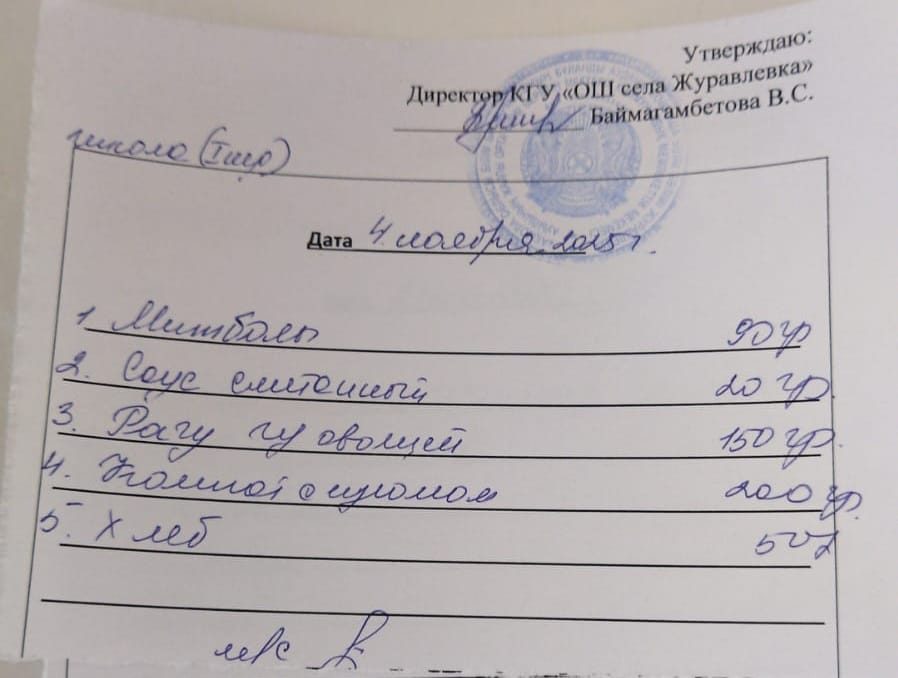 Утверждаю:
Директор КГУ «ОШ села Журавлевка»
Баймагамбетова В.С.
школа
Дата 4 ноября 2025г.
1 Митболы 90гр
2. Соус сметанный 20 гр.
3. Рагу из овощей 150 гр.
4. Компот с изюмом 200 гр.
5. Хлеб 50г
м/с